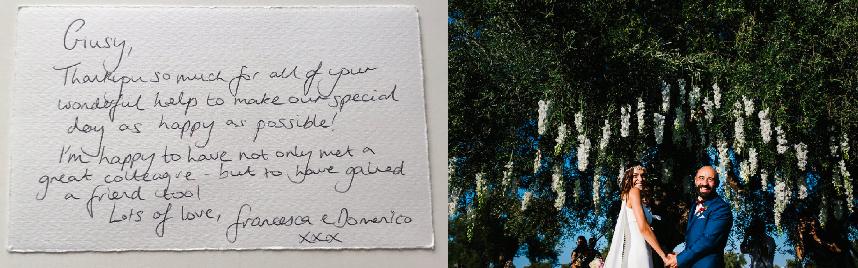 Giusy,
Thankyou so much for all of your
wonderful help to make our special
day as happy as possible!
I'm happy to have not only met a
great colleague - but to have gained
a friend too!
Lots of love, Francesca e Domenico
xxx